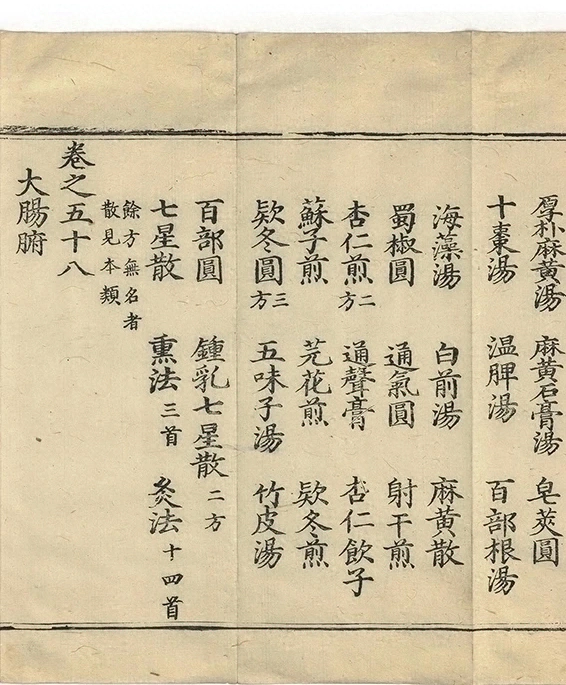 厚朴麻黄湯 麻黄石膏湯 皂莢圓
十棗湯 温脾湯 百部根湯
海藻湯 白前湯 麻黄散
蜀椒圓 通氣圓 射干煎
杏仁煎二方 通聲膏 杏仁飲子
蘇子煎 芫花煎 欵冬煎
欵冬圓三方 五味子湯 竹皮湯
百部圓 鍾乳七星散二方
七星散 熏法三首 灸法十四首
餘方無名者
散見本類
卷之五十八
大腸腑